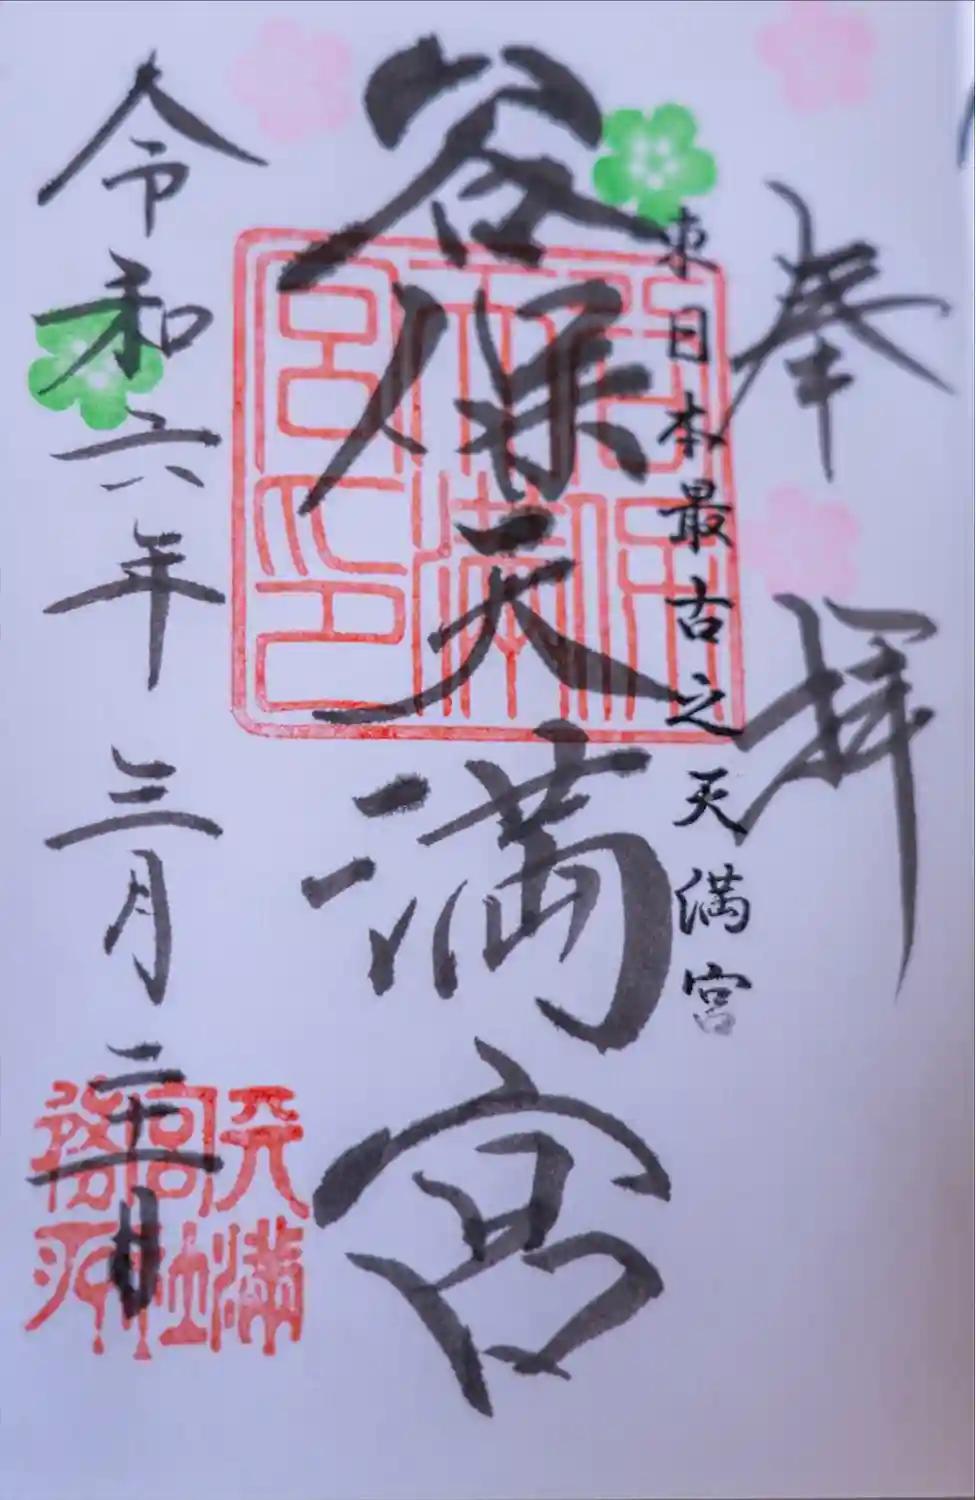 奉拝
東日本最古之天満宮
谷保天満宮
令和六年三月二十一日
谷保
天満
宮印
天満
宮社
務所